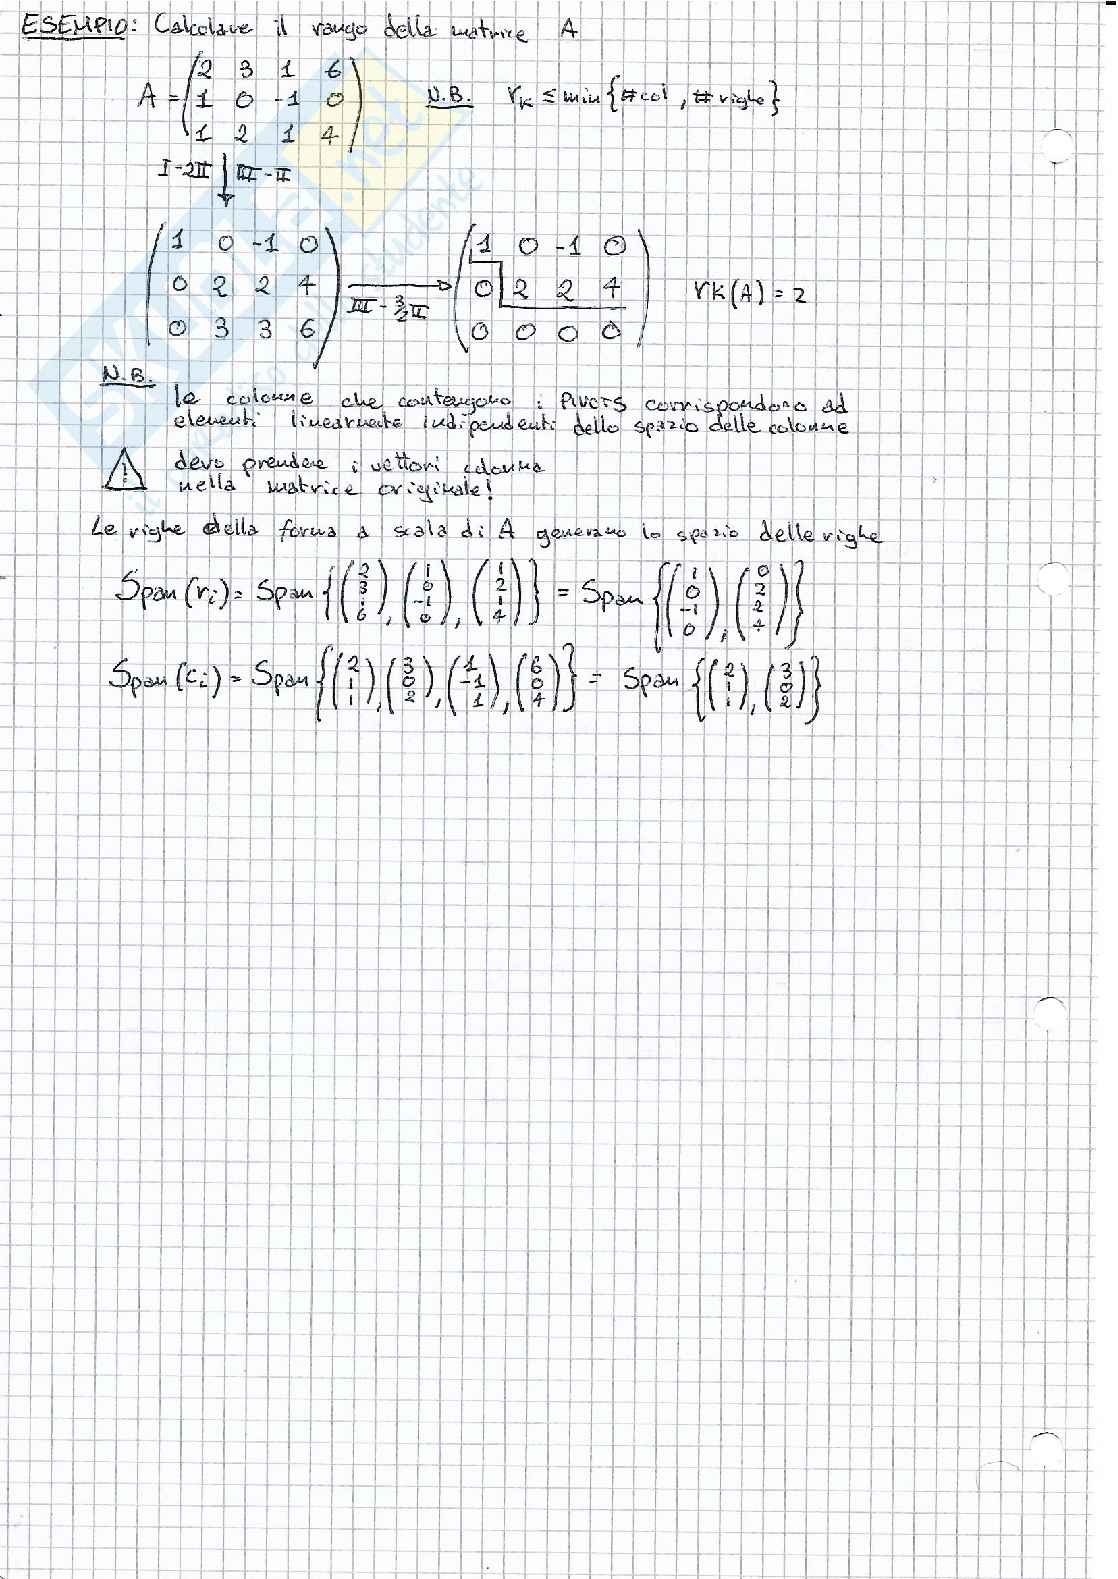 ESEMPIO: Calcolare il rango della matrice A
A = (2 3 1 6
1 0 -1 0
1 2 1 4) N.B. rk ≤ min{#col, #righe}
I-2II ↓ III-II
(1 0 -1 0
0 2 2 4
0 3 3 6) III - 3/2 II → (1 0 -1 0
0 2 2 4
0 0 0 0) rk(A) = 2
N.B.
le colonne che contengono i pivots corrispondono ad
elementi linearmente indipendenti dello spazio delle colonne
! devo prendere i vettori colonna
nella matrice originale!
Le righe della forma a scala di A generano lo spazio delle righe
Span(ri) = Span{(2 3 1 6), (1 0 -1 0), (1 2 1 4)} = Span{(1 0 -1 0), (0 2 2 4)}
Span(ci) = Span{(2 1 1), (3 0 2), (1 -1 1), (6 0 4)} = Span{(2 1 1), (3 0 2)}